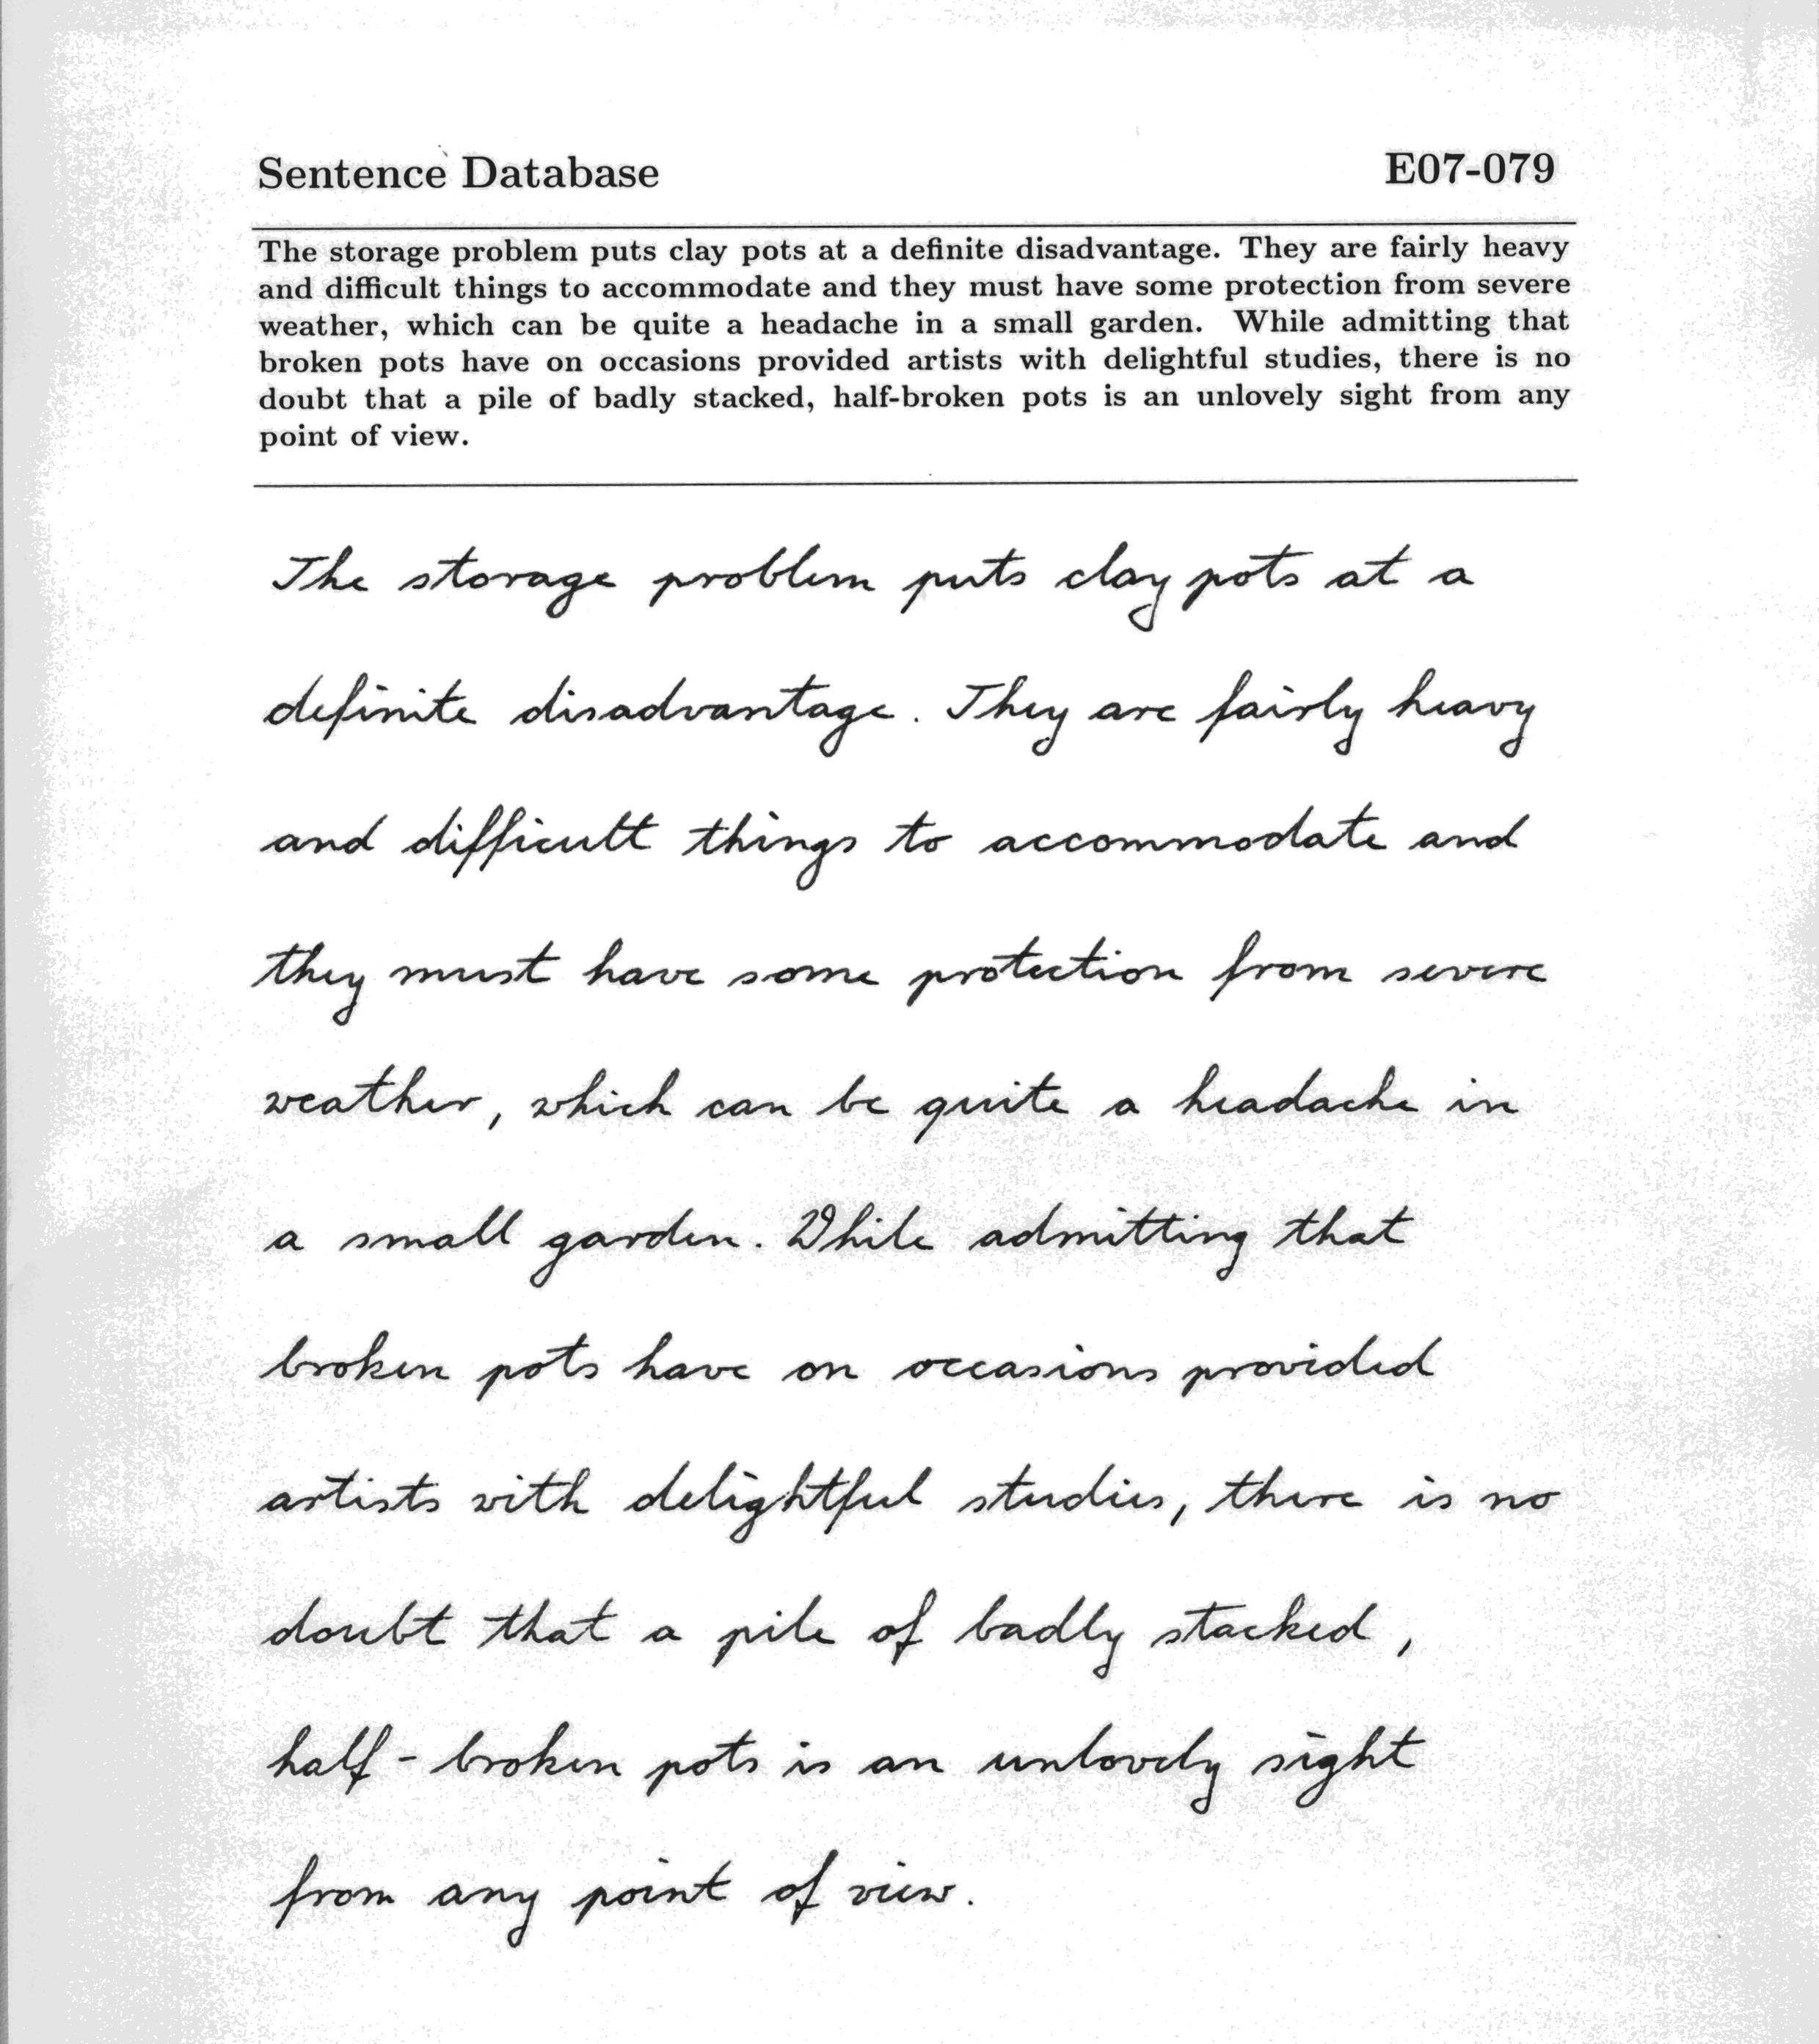 Sentence Database E07-079
The storage problem puts clay pots at a definite disadvantage. They are fairly heavy
and difficult things to accommodate and they must have some protection from severe
weather, which can be quite a headache in a small garden. While admitting that
broken pots have on occasions provided artists with delightful studies, there is no
doubt that a pile of badly stacked, half-broken pots is an unlovely sight from any
point of view.
The storage problem puts clay pots at a
definite disadvantage. They are fairly heavy
and difficult things to accommodate and
they must have some protection from severe
weather, which can be quite a headache in
a small garden. While admitting that
broken pots have on occasions provided
artists with delightful studies, there is no
doubt that a pile of badly stacked,
half-broken pots is an unlovely sight
from any point of view.